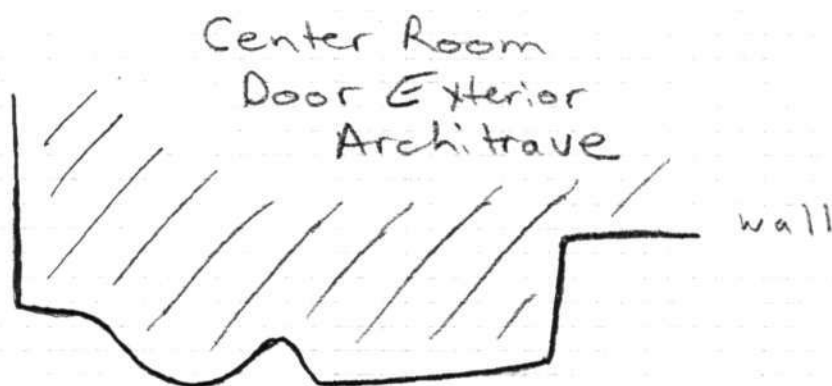 Center Room
Door Exterior
Architrave
wall